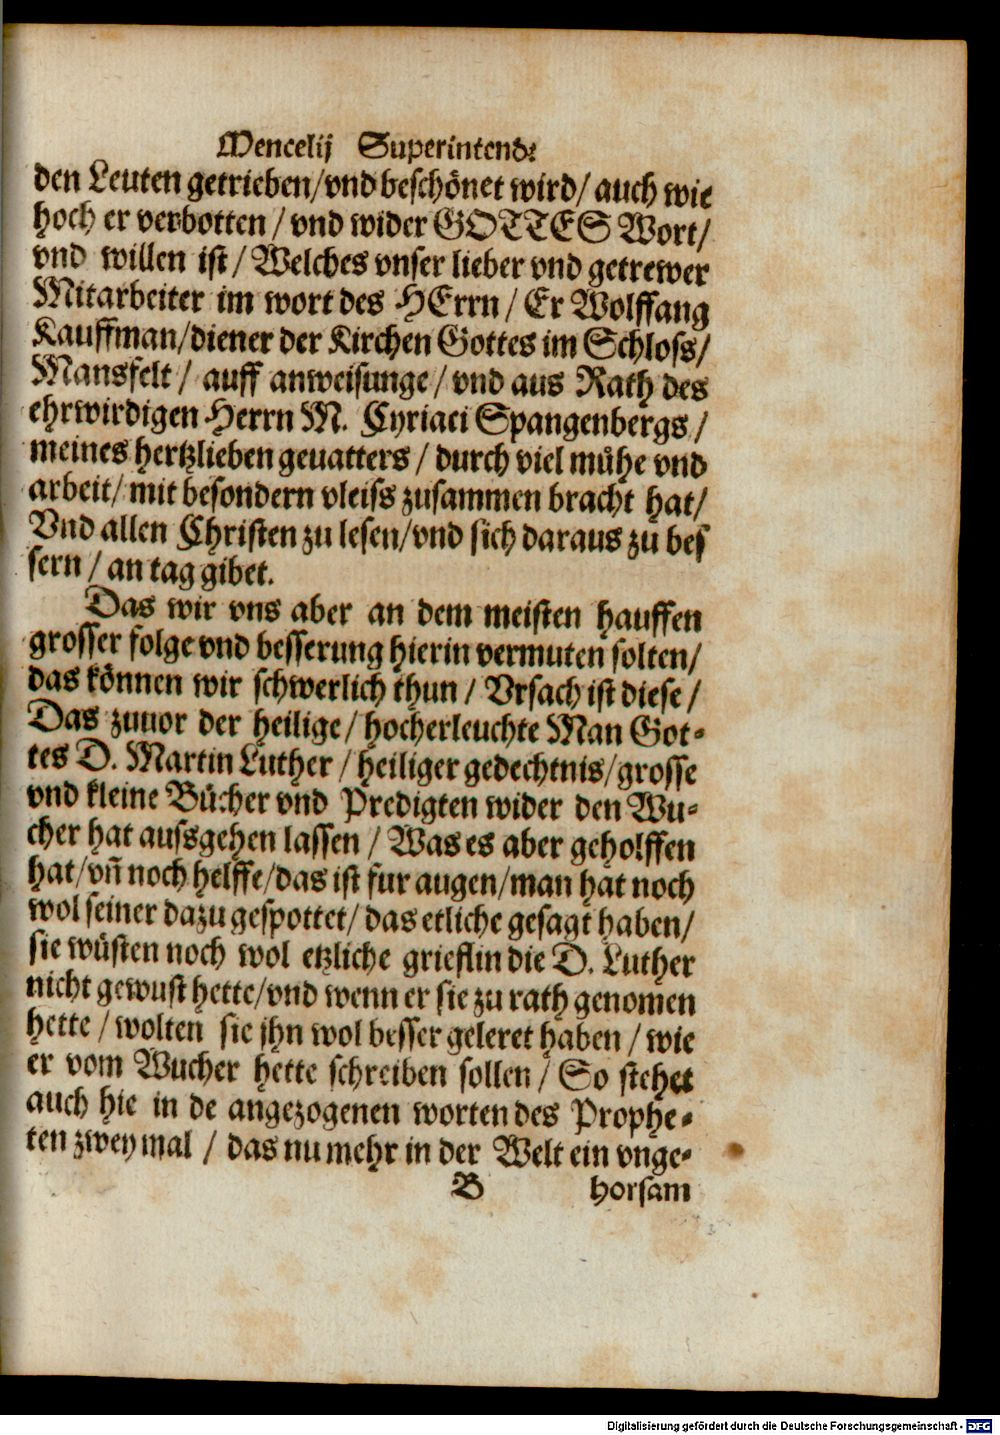 Mencelij Superintend:
den Leuten getrieben/vnd beschönet wird/ auch wie
hoch er verbotten / vnd wider GOTTES Wort/
vnd willen ist / Welches vnser lieber vnd getrewer
Mitarbeiter im wort des HErrn / Er Wolffang
Kauffman/diener der Kirchen Gottes im Schloss/
Mansfelt / auff anweisunge / vnd aus Rath des
ehrwirdigen Herrn M. Cyriaci Spangenbergs /
meines hertzlieben geuatters / durch viel mühe vnd
arbeit/ mit besondern vleiss zusammen bracht hat/
Vnd allen Christen zu lesen/vnd sich daraus zu bes
sern / an tag gibet.
Das wir vns aber an dem meisten hauffen
grosser folge vnd besserung hierin vermuten solten/
das können wir schwerlich thun / Vrsach ist diese /
Das zuuor der heilige / hocherleuchte Man Got-
tes D. Martin Luther / heiliger gedechtnis/grosse
vnd kleine Bücher vnd Predigten wider den Wu-
cher hat aussgehen lassen / Was es aber geholffen
hat/vñ noch helffe/das ist fur augen/man hat noch
wol seiner dazu gespottet/ das etliche gesagt haben/
sie wüsten noch wol etzliche grieflin die D. Luther
nicht gewust hette/vnd wenn er sie zu rath genomen
hette / wolten sie jhn wol besser geleret haben / wie
er vom Wucher hette schreiben sollen / So stehet
auch hie in de angezogenen worten des Prophe-
ten zwey mal / das nu mehr in der Welt ein vnge-
B horsam
Digitalisierung gefördert durch die Deutsche Forschungsgemeinschaft - DFG